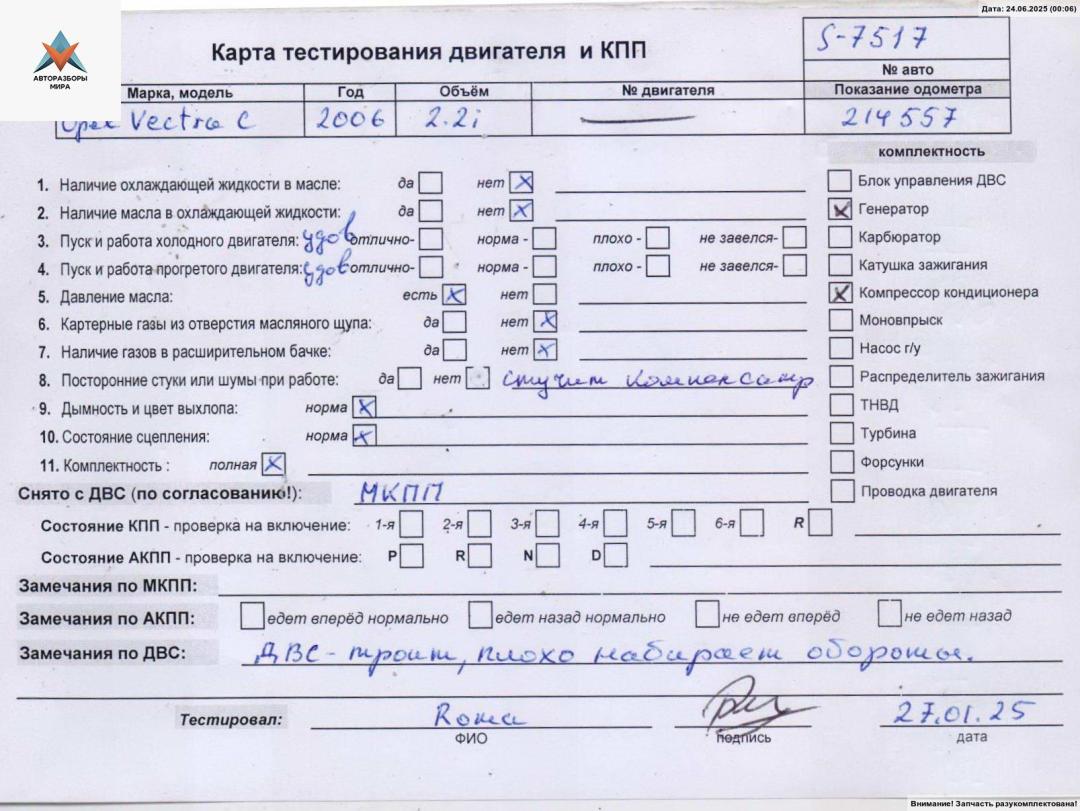 Дата: 24.06.2025 (00:06)
АВТОРАЗБОРЫ
МИРА
Карта тестирования двигателя и КПП
S-7517
№ авто
Марка, модель Год Объём № двигателя Показание одометра
Opel Vectra C 2006 2.2i 214557
комплектность
1. Наличие охлаждающей жидкости в масле: да нет X
Блок управления ДВС
2. Наличие масла в охлаждающей жидкости: да нет X
X Генератор
3. Пуск и работа холодного двигателя: удов отлично- норма - плохо - не завелся-
Карбюратор
4. Пуск и работа прогретого двигателя: удов отлично- норма - плохо - не завелся-
Катушка зажигания
5. Давление масла: есть X нет
X Компрессор кондиционера
6. Картерные газы из отверстия масляного щупа: да нет X
Моновпрыск
7. Наличие газов в расширительном бачке: да нет X
Насос г/у
8. Посторонние стуки или шумы при работе: да нет стучит компенсатр
Распределитель зажигания
9. Дымность и цвет выхлопа: норма X
ТНВД
10. Состояние сцепления: норма X
Турбина
11. Комплектность : полная X
Форсунки
Снято с ДВС (по согласованию!): МКПП
Проводка двигателя
Состояние КПП - проверка на включение: 1-я 2-я 3-я 4-я 5-я 6-я R
Состояние АКПП - проверка на включение: P R N D
Замечания по МКПП:
Замечания по АКПП: едет вперёд нормально едет назад нормально не едет вперёд не едет назад
Замечания по ДВС: ДВС - троит, плохо набирает обороты.
Тестировал: Roma 27.01.25
ФИО подпись дата
Внимание! Запчасть разукомплектована!